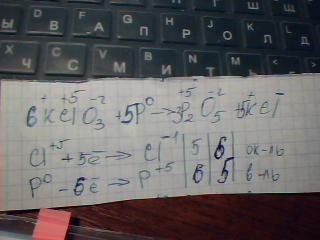 А П Р О Л Д Ж
Ч С М И Т Ь Б
6KClO₃ + 5P⁰ → 3P₂O₅ + 5KCl
Cl⁺⁵ + 5e̅ → Cl⁻¹ | 5 | 6 | ок-ль
P⁰ - 6e̅ → P⁺⁵ | 6 | 5 | в-ль